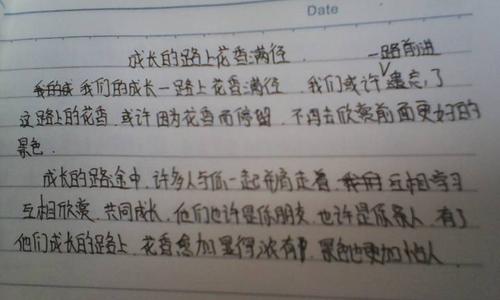 Date
成长的路上花香满径
一路前进
我的成 我们的成长一路上花香满径 我们或许遗忘了
这路上的花香.或许因为花香而停留.不再去欣赏前面更好的
景色.
成长的路途中.许多人与你一起并肩走着 我们 互相学习
互相欣赏.共同成长.他们也许是你朋友.也许是你亲人.有了
他们成长的路上.花香愈加显得浓有 景色也更加怡人